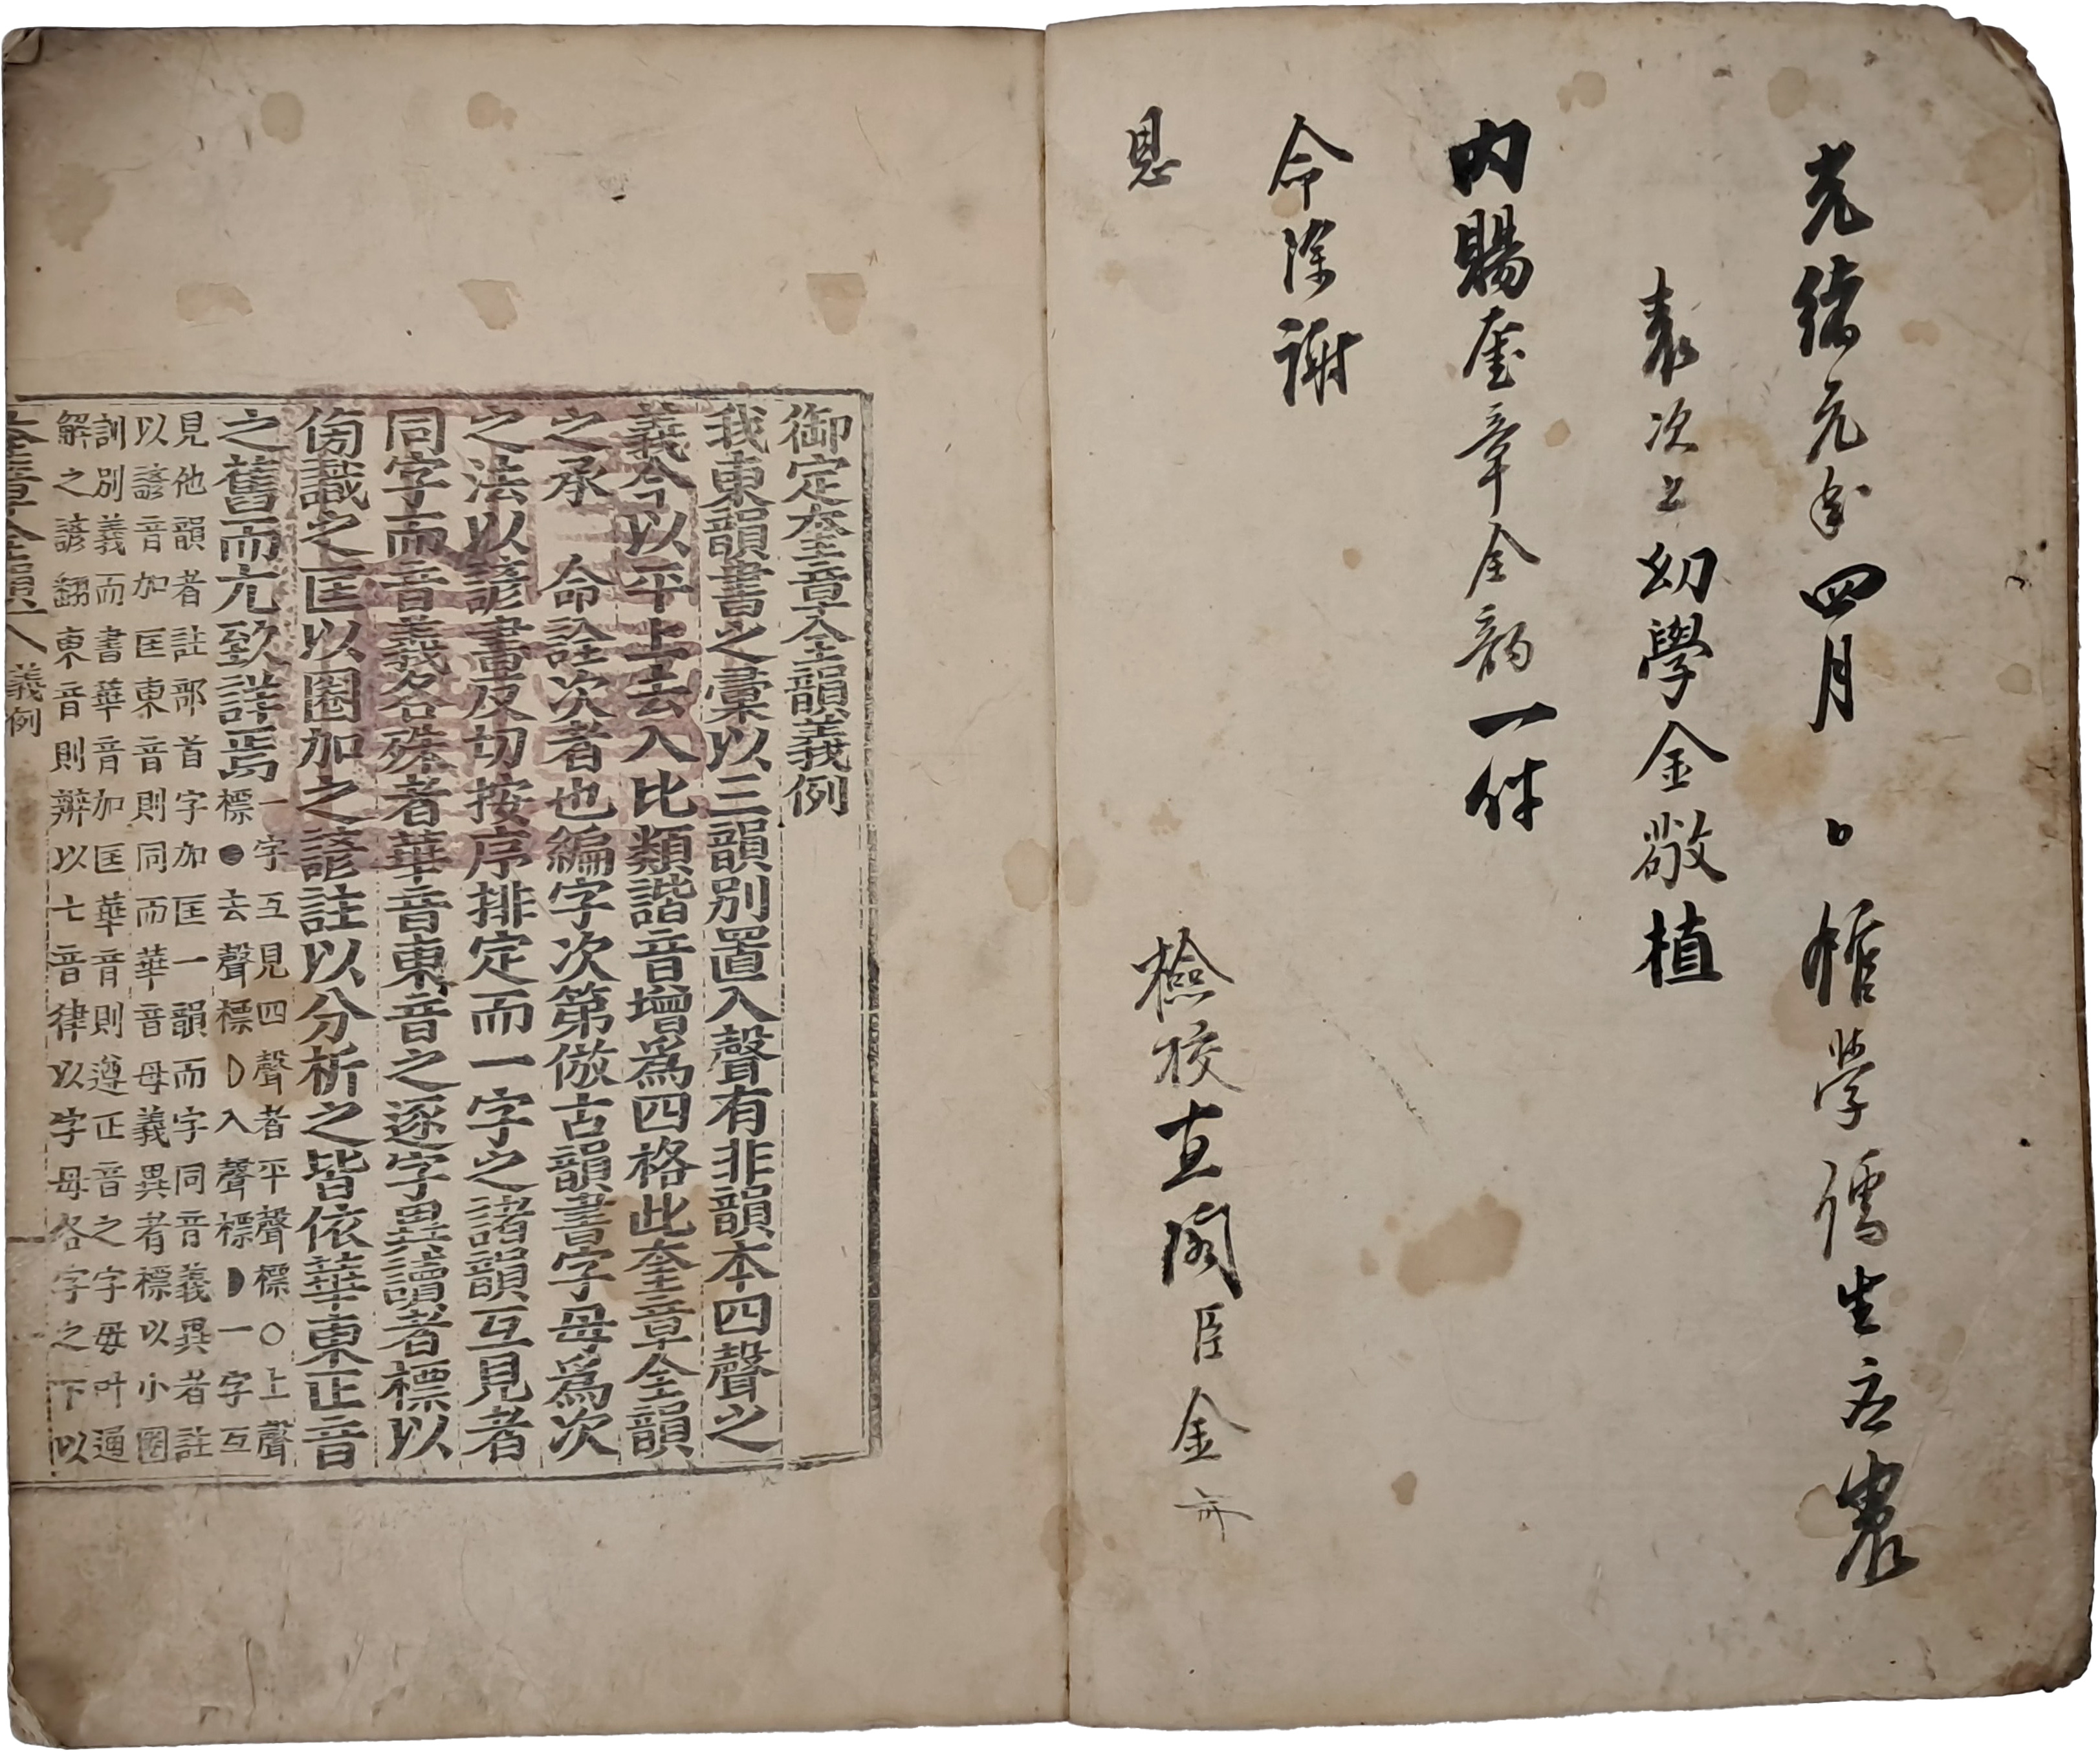 光緒元年四月 日館學儒生応製
表次上幼學金敬植
內賜奎章全韵一件
命除謝
恩
檢校直閣臣金
御定奎章全韻義例
我東韻書之彙以三韻別置入聲有非韻本四聲之
義今以平上去入比類諧音增爲四格此奎章全韻
之承 命註次者也編字次第倣古韻書字母爲次
之法以諺書反切按序排定而一字之諸韻互見者
同字而音義各殊者華音東音之逐字異讀者標以
傍識之匡以圈加之諺註以分析之皆依華東正音
之舊而尤致詳焉
一字互見四聲者平聲標○上聲
標●去聲標◗入聲標◗一字互
見他韻者註部首字加匡一韻而字同音義異者註
以諺音加匡東音則同而華音母義異者標以小圈
訓別義而書華音加匡華音則遵正音之字母叶通
解之諺飜東音則辨以七音律以字母各字之下以
奎章全韻 義例